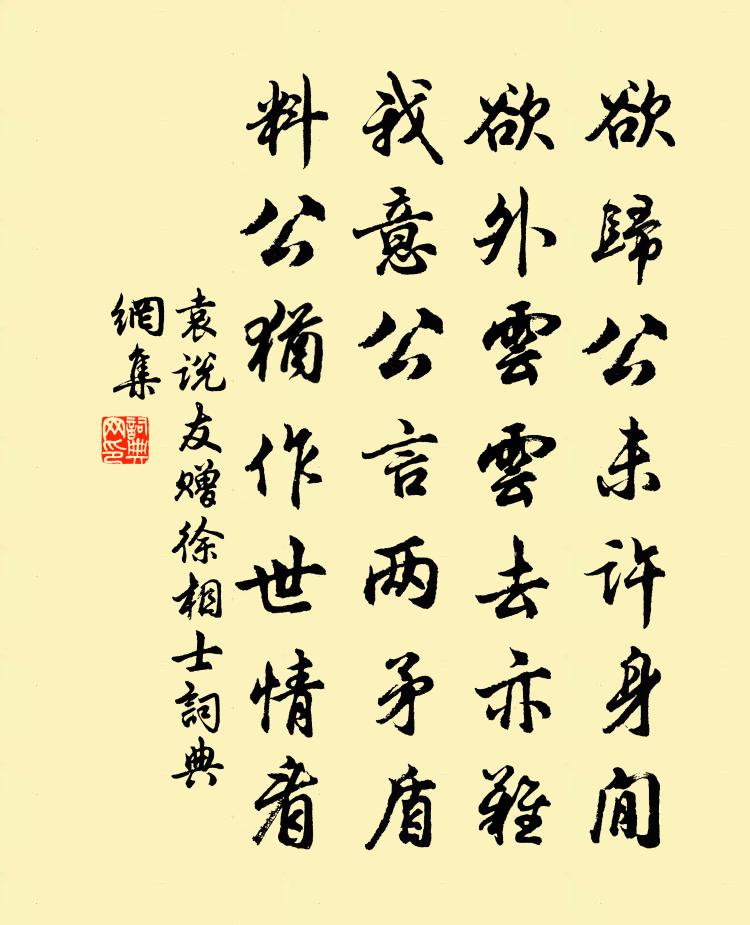 欲歸公未許身閒
欲外雲雲去亦難
我意公言两矛盾
料公猶作世情看
袁说友赠徐相士詞典
網集
詞典网印